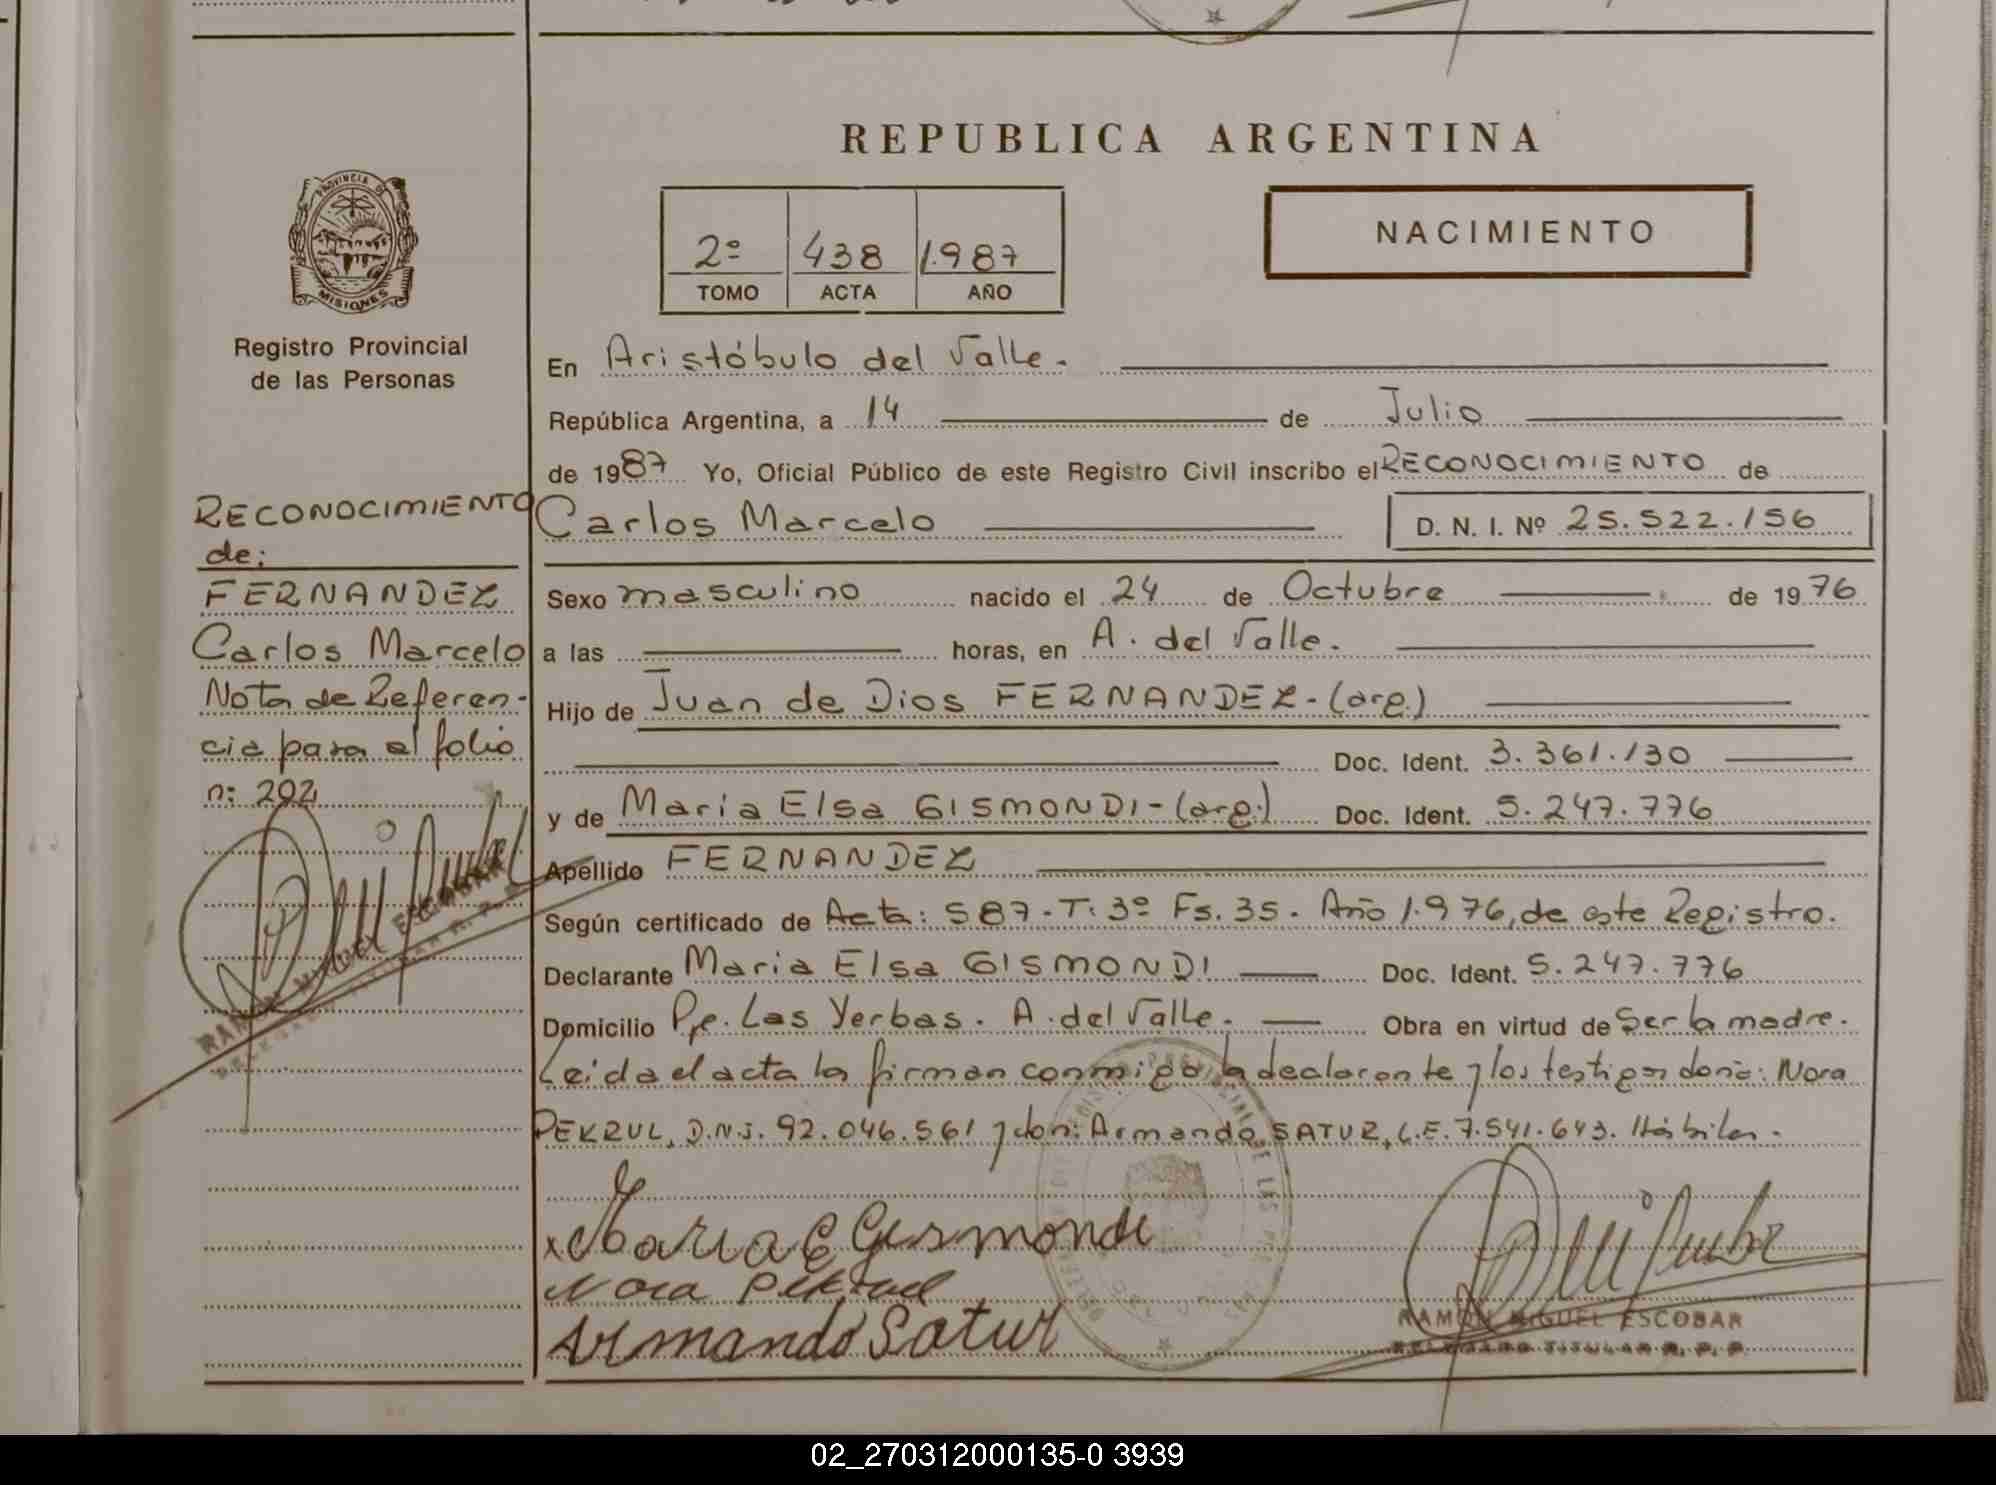 REPUBLICA ARGENTINA
PROVINCIA DE
MISIONES
Registro Provincial
de las Personas
2º 438 1.987
TOMO ACTA AÑO
NACIMIENTO
En Aristóbulo del Valle.
República Argentina, a 14 de Julio
de 1987 Yo, Oficial Público de este Registro Civil inscribo el RECONOCIMIENTO de
Carlos Marcelo D. N. I. Nº 25.522.156
Sexo masculino nacido el 24 de Octubre de 1976
a las horas, en A. del Valle.
Hijo de Juan de Dios FERNANDEZ-(arg.)
Doc. Ident. 3.361.130
y de Maria Elsa GISMONDI-(arg.) Doc. Ident. 5.247.776
Apellido FERNANDEZ
Según certificado de Acta: 587-T: 3º Fs. 35. Año 1.976, de este Registro.
Declarante Maria Elsa GISMONDI Doc. Ident. 5.247.776
Domicilio Pje. Las Yerbas. A. del Valle. Obra en virtud de Ser la madre.
Leida el acta la firman conmigo la declarante y los testigos doña: Nora
PEKRUL, D.N.I. 92.046.561 y don: Armando SATUR, L.E. 7.541.643. Hábiles.
x Maria E Gismondi
Nora Pekrul
Armando Satur
RAMON MIGUEL ESCOBAR
DELEGADO TITULAR R. P. P.
RECONOCIMIENTO
de:
FERNANDEZ
Carlos Marcelo
Nota de Referen-
cia para el folio
n: 202
RAMON MIGUEL ESCOBAR
DELEGADO TITULAR R. P. P.
02_270312000135-0 3939